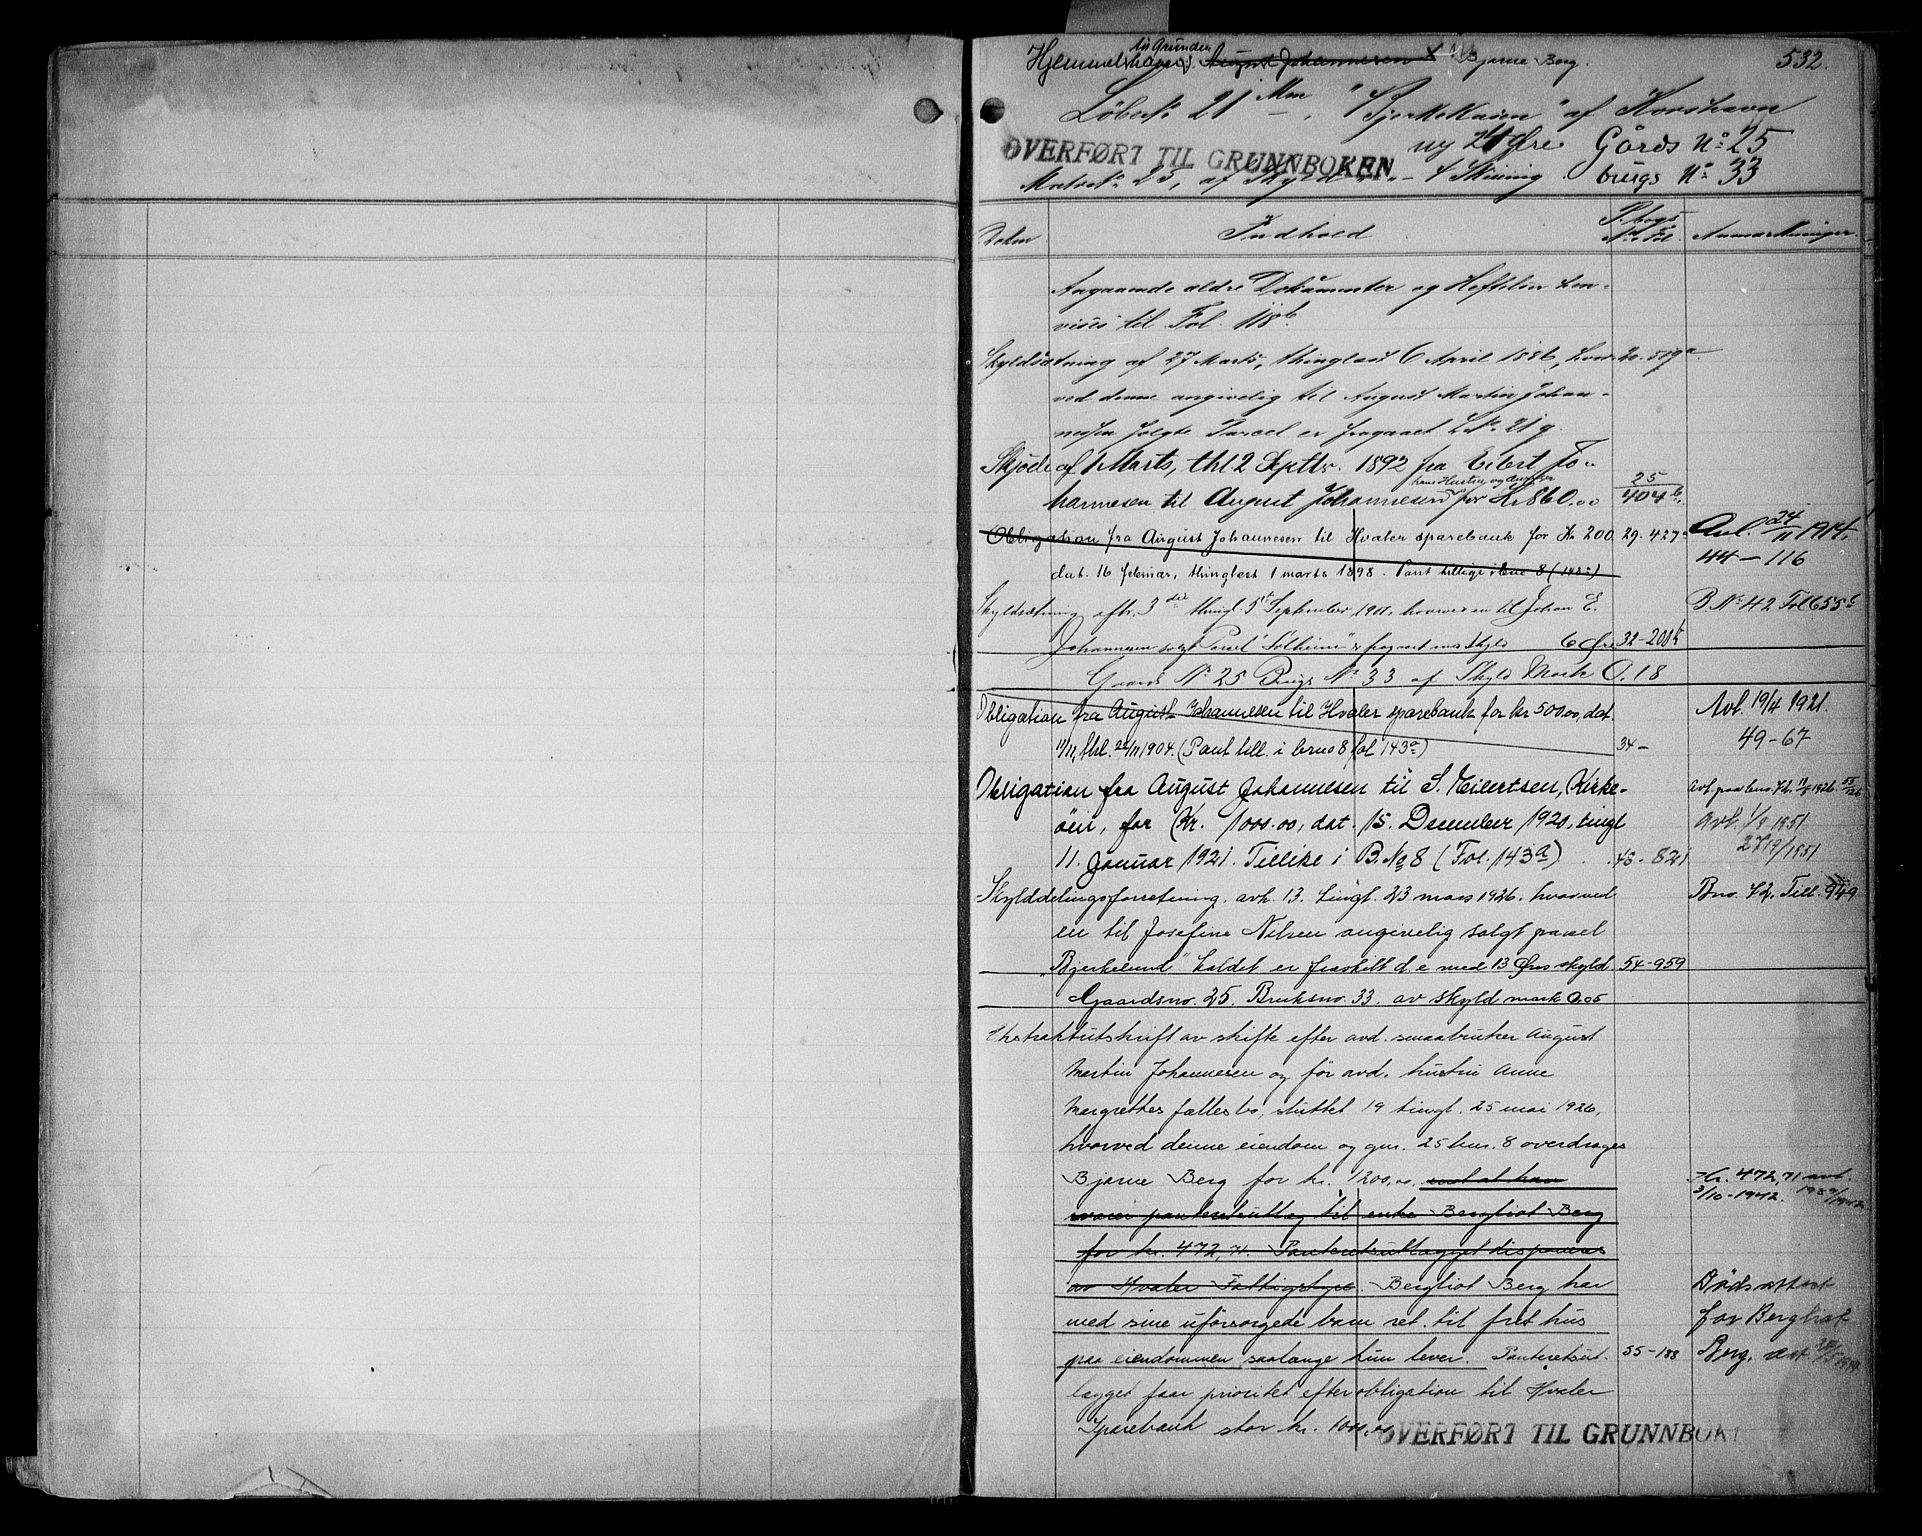 532.
til Grunden
Hjemmelshaver: August Johannesen X Bjarne Berg.
Löbe No 21 "Bjerkekasen" af Korshavn
OVERFØRT TIL GRUNNBOKEN
ny 24 Øre. Gårds No 25
Matr. No 25, af Skyld " - 4 Skilling. brugs No 33
Indhold
P. bogs
No. Fol.
Anmærkninger.
Angaaende ældre Dokumenter og Heftelser hen-
vises til Fol. 118 b.
Skyldsætning af 27 Marts, thinglæst 6 April 1886, hvor- 20-519 a.
ved denne angivelig til August Martin Johan-
nesen solgte Parcel er fragaaet L No. 21 g.
Skjöde af 1 Marts, thl 2 Septbr. 1892 fra Eilert Jo-
hans Hustru og
hannesen til August Johannesen for Kr 860.00
25
404 b.
Obligation fra August Johannesen til Hvaler sparebank for Kr 200, 29-427
dat. 16 februar, thinglæst 1 marts 1898. Pant tillige i bno 8 (143 a)
Avl. 24/11 1914.
44 - 116
Skyldsætning afh. 3 die thingl. 5 te September 1901, hvorved en til Johan E.
Johannesen solgt Parcel "Solheim" er fragaaet med Skyld 6 Øre 32-201 b
B. No 42 Fol 655
Gaards No 25 Brugs No 33 af Skyld Mark 0.18
Obligation fra August Johannesen til Hvaler sparebank for kr 500.00, dat.
11/11, thl. 22/11 1904. (Pant till. i brno 8 fol 143 a) 34 -
Avl. 19/4 1921.
49-67
Obligation fra August Johannesen til S. Eilertsen, Kirke-
öen, for Kr. 1000.00, dat. 15. December 1920, tingl
11. Januar 1921. Tillike i B. No 8 (Fol. 143 a). 48-821
Avl. paa bno. 72. 11/5 1926. 55/126
Avl. 1/9 1951
2719/1951
Skylddelingsforretning, avh. 13. tingl. 23 mars 1926, hvorved
en til Josefine Nilsen angivelig solgt parsel
"Bjerkelund" kaldet er fraskilt d. e. med 13 Øres skyld 54-959
Bno. 72. Till. 949
Gaardsno. 25. Bruksno. 33. av skyld mark 0.05
Ekstraktutskrift av skifte efter avd. smaabruker August
Martin Johannesen og før avd. hustru Anne
Margrethes fællesbo, sluttet 19 tingl. 25 mai 1926,
hvorved denne eiendom og gnr. 25 bnr. 8 overdrages
Bjarne Berg for kr. 1200,00, mot at han
svarer panteretsutlæg til enke Bergliot Berg
for kr. 472,71. Panteretsutlægget disponeres
av Hvaler Fattigstyre. Bergliot Berg har
med sine uforsørgede barn ret til frit hus
paa eiendommen saalange hun lever. Panteretsut- 55-188
lægget faar prioritet efter obligation til Hvaler
Sparebank stor kr. 1000,00
Kr. 472,71 avl.
3/10-1942. 1989/1942
Dødsattest
for Bergliot
Berg, avl
OVERFØRT TIL GRUNNBOK